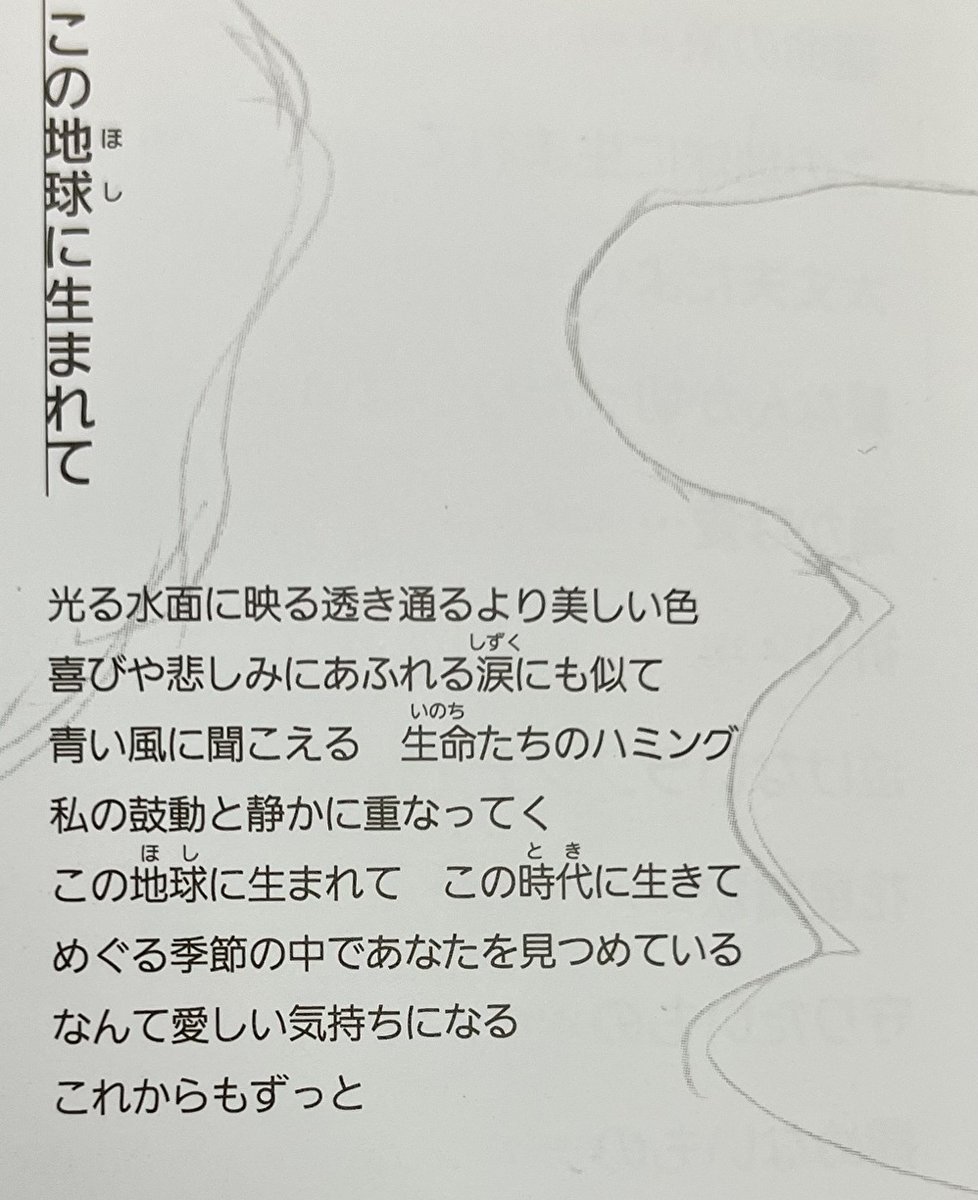 この地球に生まれて
光る水面に映る透き通るより美しい色
喜びや悲しみにあふれる涙にも似て
青い風に聞こえる　生命たちのハミング
私の鼓動と静かに重なってく
この地球に生まれて　この時代に生きて
めぐる季節の中であなたを見つめている
なんて愛しい気持ちになる
これからもずっと